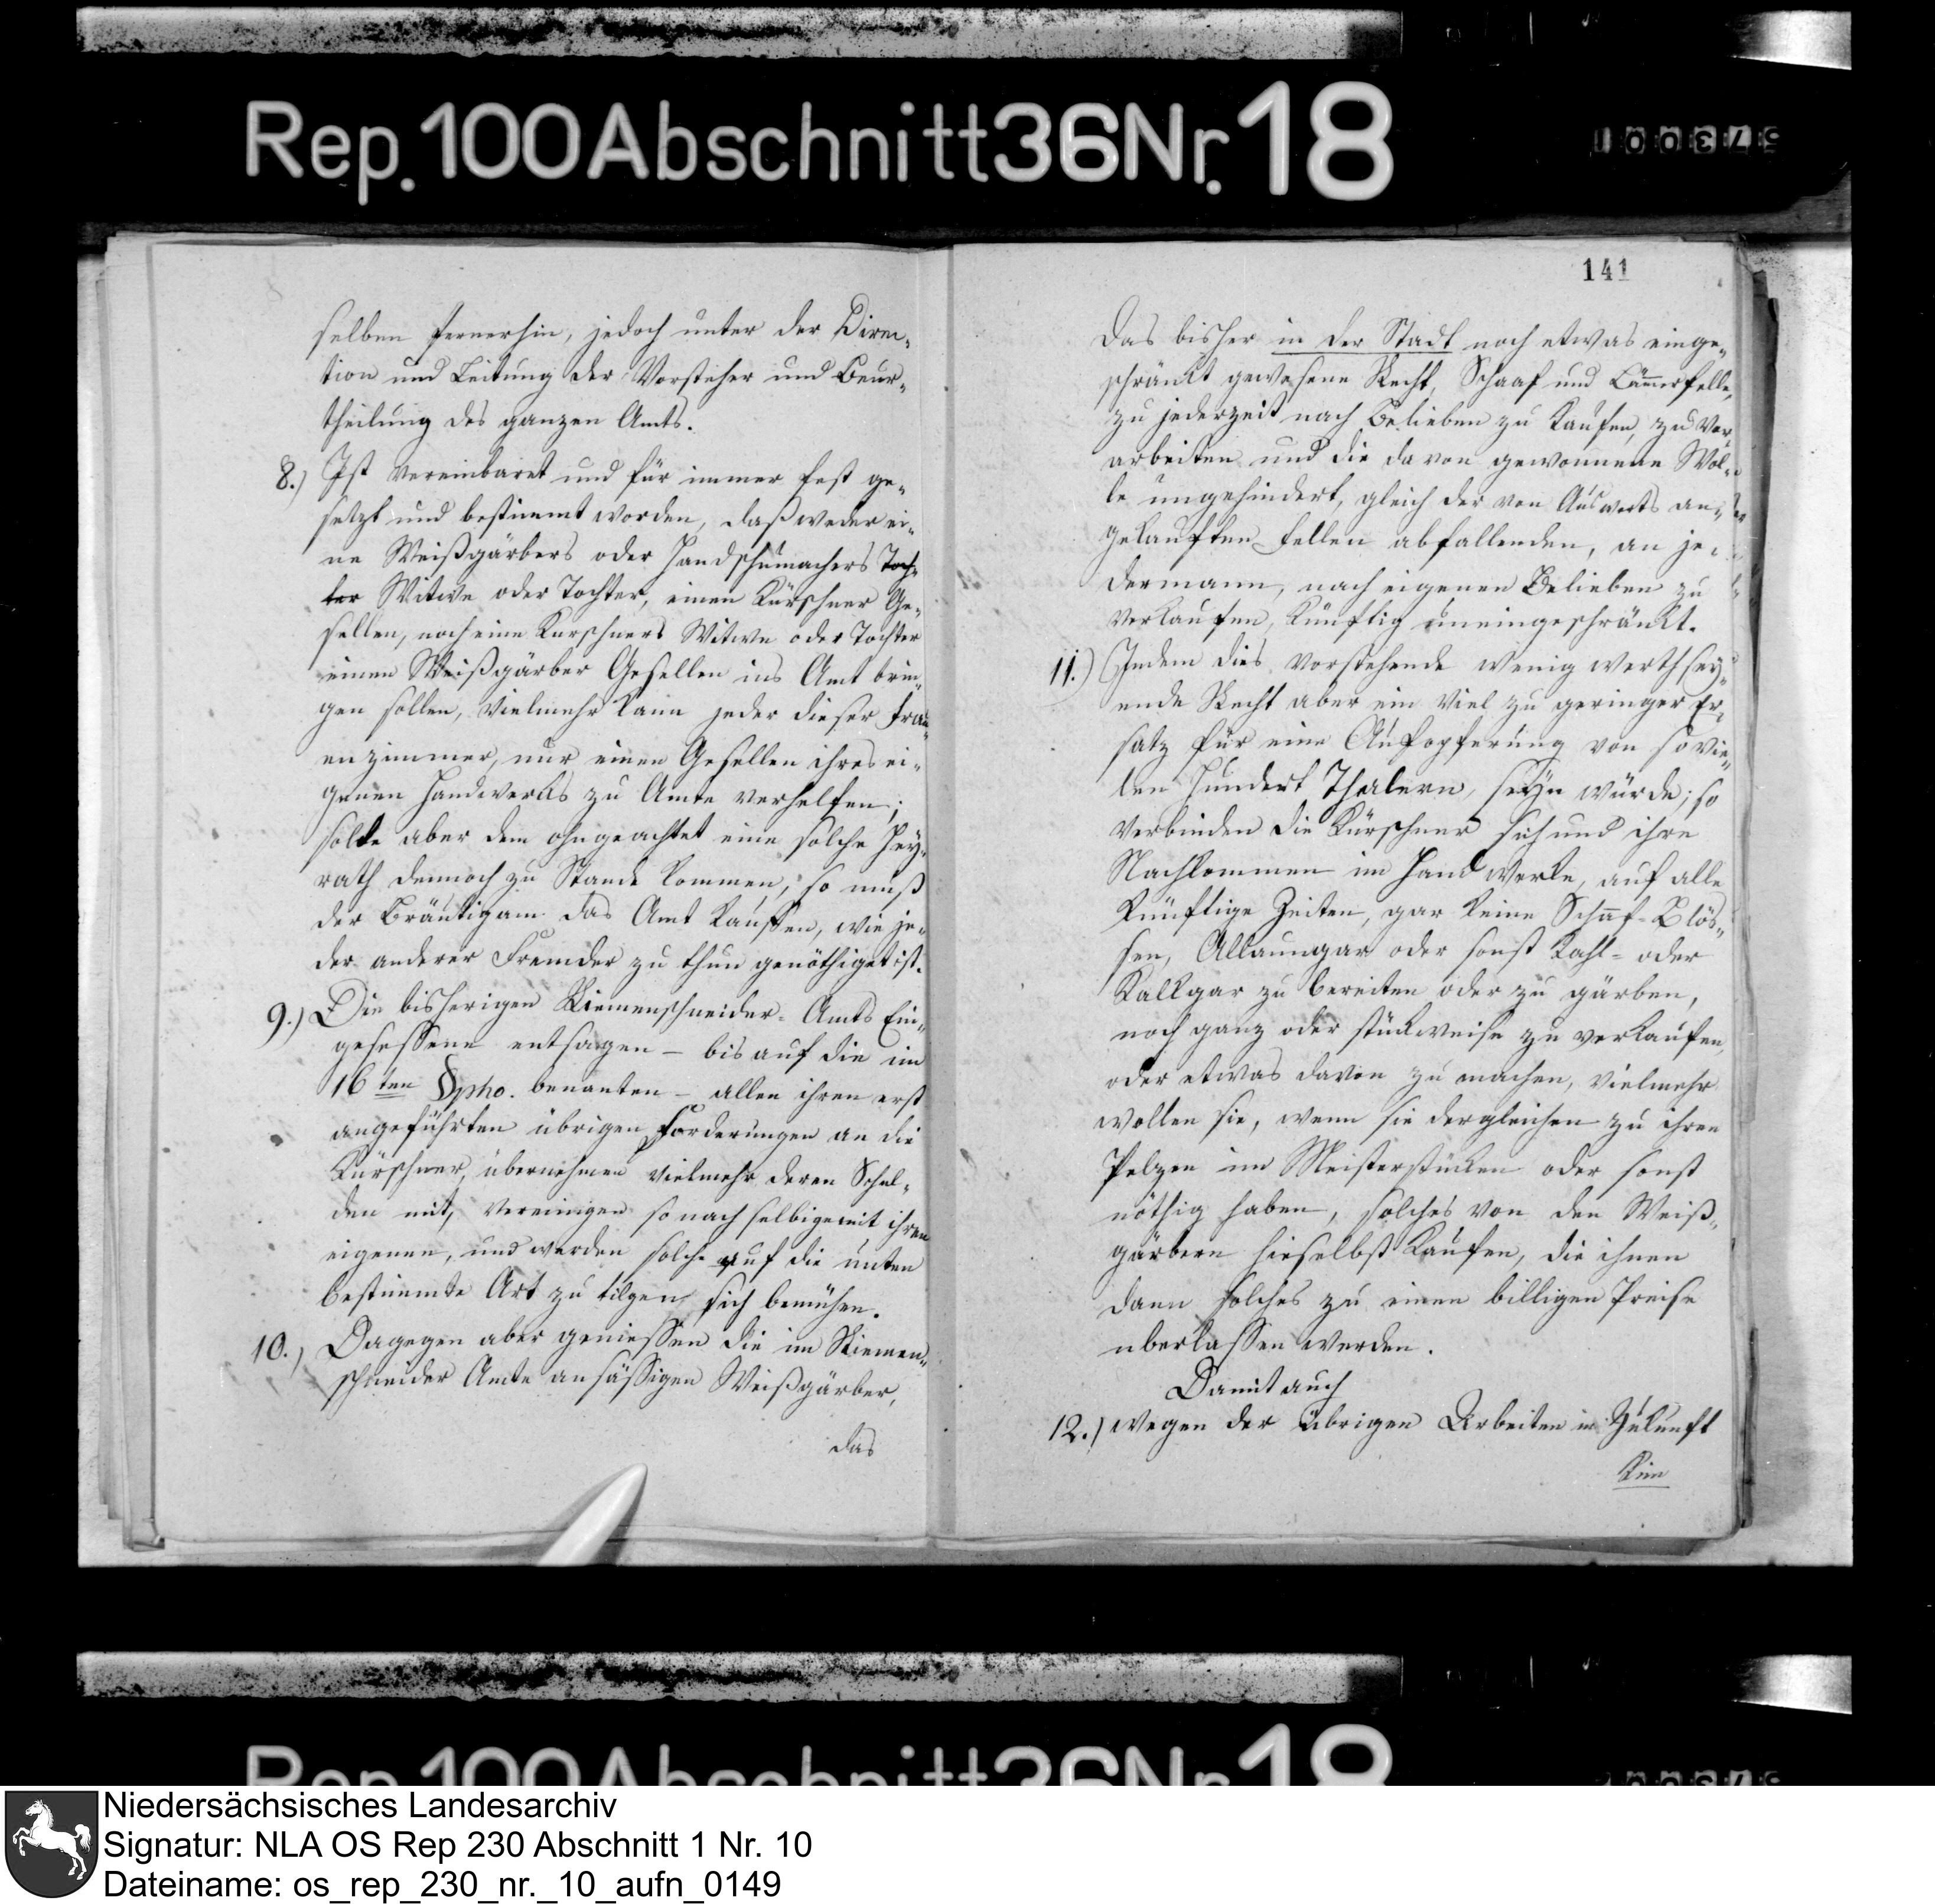 Rep. 100 Abschnitt 36 Nr. 18
selben fernerhin, jedoch unter der Direc„
tion und Leitung der Vorsteher und Beur„
theilung des ganzen Amts.
8.) Ist vereinbaret und für immer fest ge„
setzt und bestimmt worden, daß weder ei„
ne Weißgärbers oder Handschumachers Toch„
ter Witwe oder Tochter, einen Kürschner Ge„
sellen, noch eine Kurschners Witwe oder Tochter
einen Weißgärber Gesellen ins Amt brin„
gen sollen, vielmehr kann jeder dieser Frau„
enzimmer, nur einen Gesellen ihres ei„
genen Handwerks zu Amte verhelfen;
solte aber dem ohngeachtet eine solche Hey„
rath dennoch zu Stande kommen, so muß
der Bräutigam das Amt kauffen, wie je„
der anderer Fremder zu thun genöthiget ist.
9.) Die bisherigen Riemenschneider- Amts Ein„
gesessene entsagen – bis auf die im
16ten §pho. benanten – allen ihren erst
angeführten übrigen Forderungen an die
Kürschner, übernehmen vielmehr deren Schul„
den mit, vereinigen so nach selbige mit ihren
eigenen, und werden solche auf die unten
bestimmte Art zu tilgen sich bemühen.
10.) Dagegen aber geniessen die im Riemen„
schneider Amte ansässigen Weißgärber,
das
141
Das bisher in der Stadt noch etwas einge„
schränkt gewesene Recht, Schaaf und Lämmerfelle,
zu jederzeit nach Belieben zu kaufen, zu ver„
arbeiten und die davon gewonnene Wol„
le ungehindert, gleich der von Auswerts an„
gekauften Fellen abfallenden, an je„
dermann, nach eigenen Belieben zu
verkaufen, künftig uneingeschränkt.
11.) Indem dies vorstehende wenig werth sey„
ende Recht aber ein viel zu geringer Er„
satz für eine Aufopferung von so vie„
len Hundert Thalern, seyn würde; so
verbinden die Kürschner sich und ihre
Nachkommen im Handwerke, auf alle
künftige Zeiten, gar keine Schaf-Blös„
sen, Allaungar oder sonst kahl- oder
Kalkgar zu bereiten oder zu gärben,
noch ganz oder stückweise zu verkaufen,
oder etwas davon zu machen, vielmehr
wollen sie, wenn sie dergleichen zu ihren
Pelzen im Meisterstücken oder sonst
nöthig haben, solches von den Weiß„
gärbern hieselbst kaufen, die ihnen
dann solches zu einen billigen Preise
uberlassen werden.
Damit auch
12.) wegen der übrigen Arbeiten in Zukunft
kein
Niedersächsisches Landesarchiv
Signatur: NLA OS Rep 230 Abschnitt 1 Nr. 10
Dateiname: os_rep_230_nr._10_aufn_0149